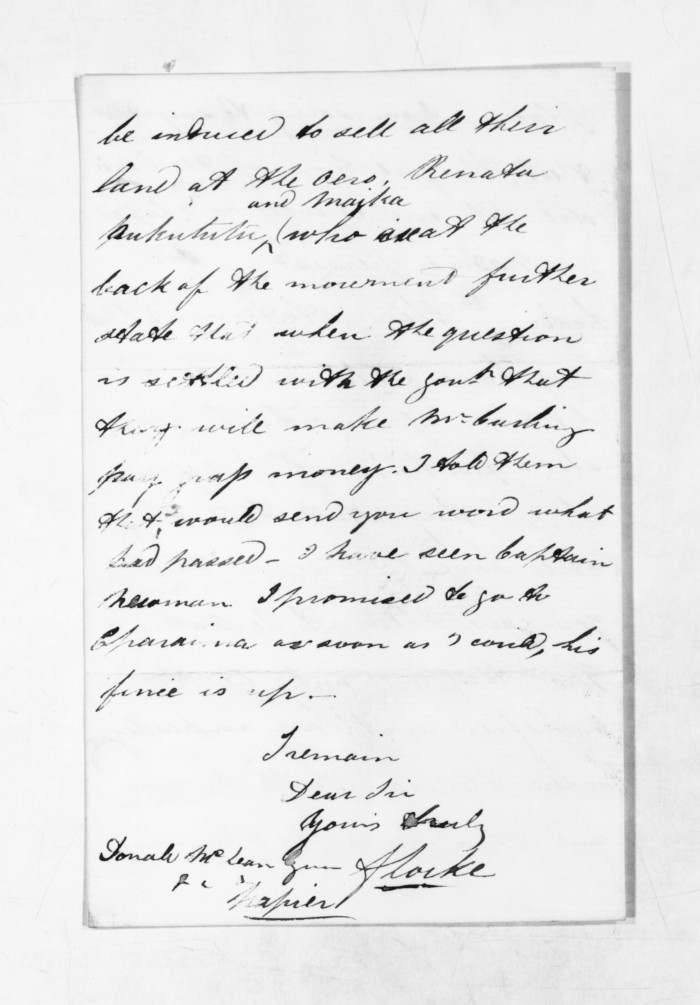 be induced to sell all their
land at the Oero, Renata
and Maika
Pukututu, (who is at the
back of the movement further
state that when the question
is settled with the govt. that
they will make Mr.
pay money. I told them
that would send you word what
had passed - I have seen Captain
Newman I promised to go to
as soon as I could, his
fence is up. -
I remain
Dear Sir
Yours truly
Donald McLean
S Locke
Napier